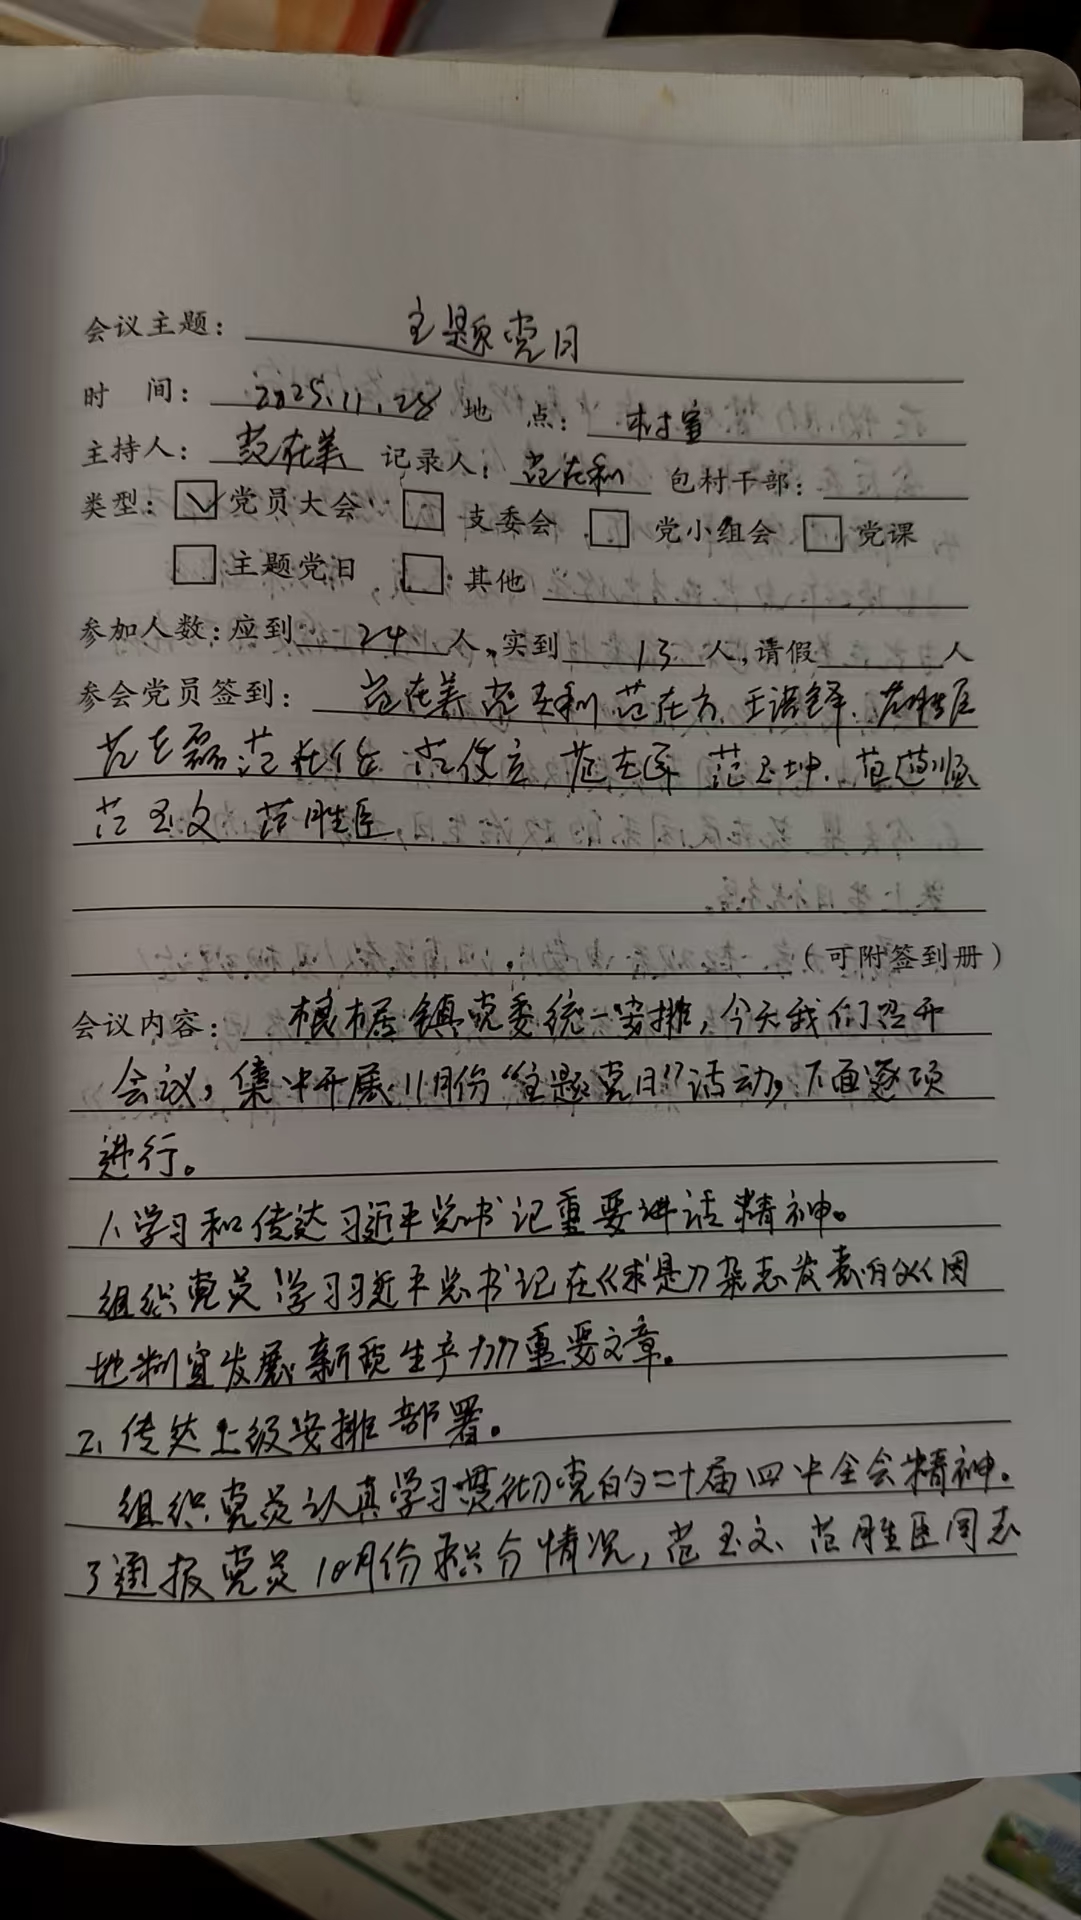 会议主题： 主题党日
时 间： 2025.11.28 地 点： 村室
主持人： 范在美 记录人： 范在利 包村干部：
类型： 党员大会 支委会 党小组会 党课
主题党日 其他
参加人数：应到 24 人，实到 13 人，请假 人
参会党员签到： 范在美 范在利 范在方 王诺铎 范胜臣
范在磊 范在 范俊 范在 范玉坤 范
范玉文 范胜臣
（可附签到册）
会议内容： 根据镇党委统一安排，今天我们召开
会议，集中开展11月份“主题党日”活动，下面逐项
进行。
1、学习和传达习近平总书记重要讲话精神。
组织党员学习习近平总书记在《求是》杂志发表的《因
地制宜发展新质生产力》重要文章。
2、传达上级安排部署。
组织党员认真学习贯彻党的二十届四中全会精神。
3通报党员10月份积分情况，范玉文、范胜臣同志